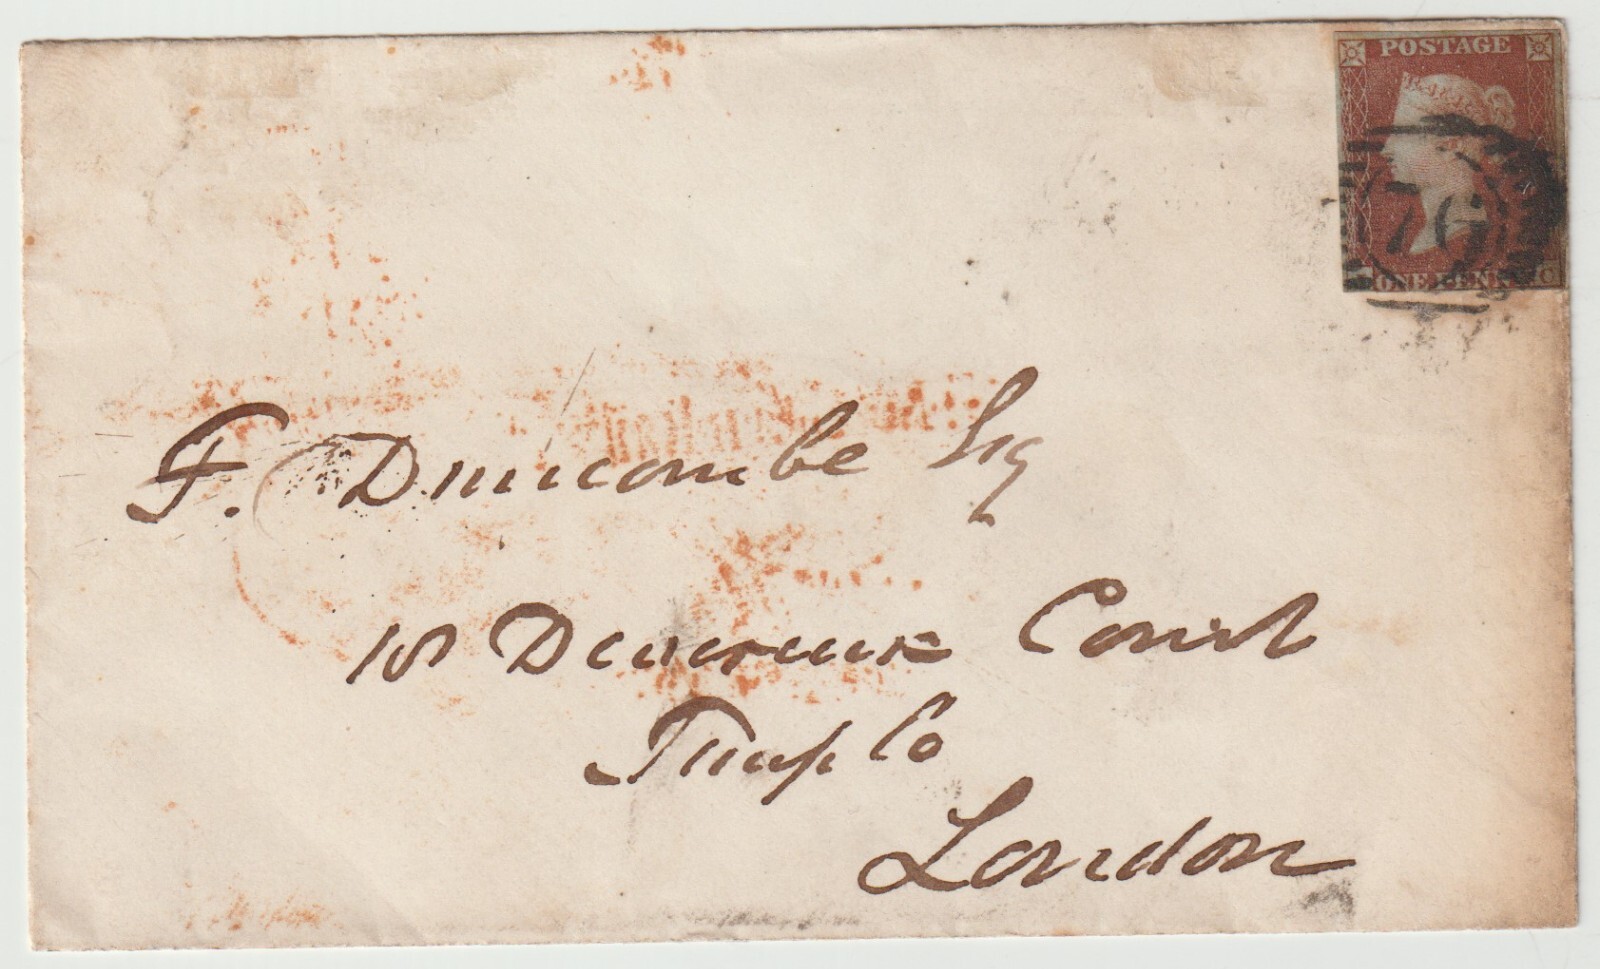 POSTAGE
76
ONE PENNY
C
F. Duncombe Esq
18 Devereux Court
Temple
London